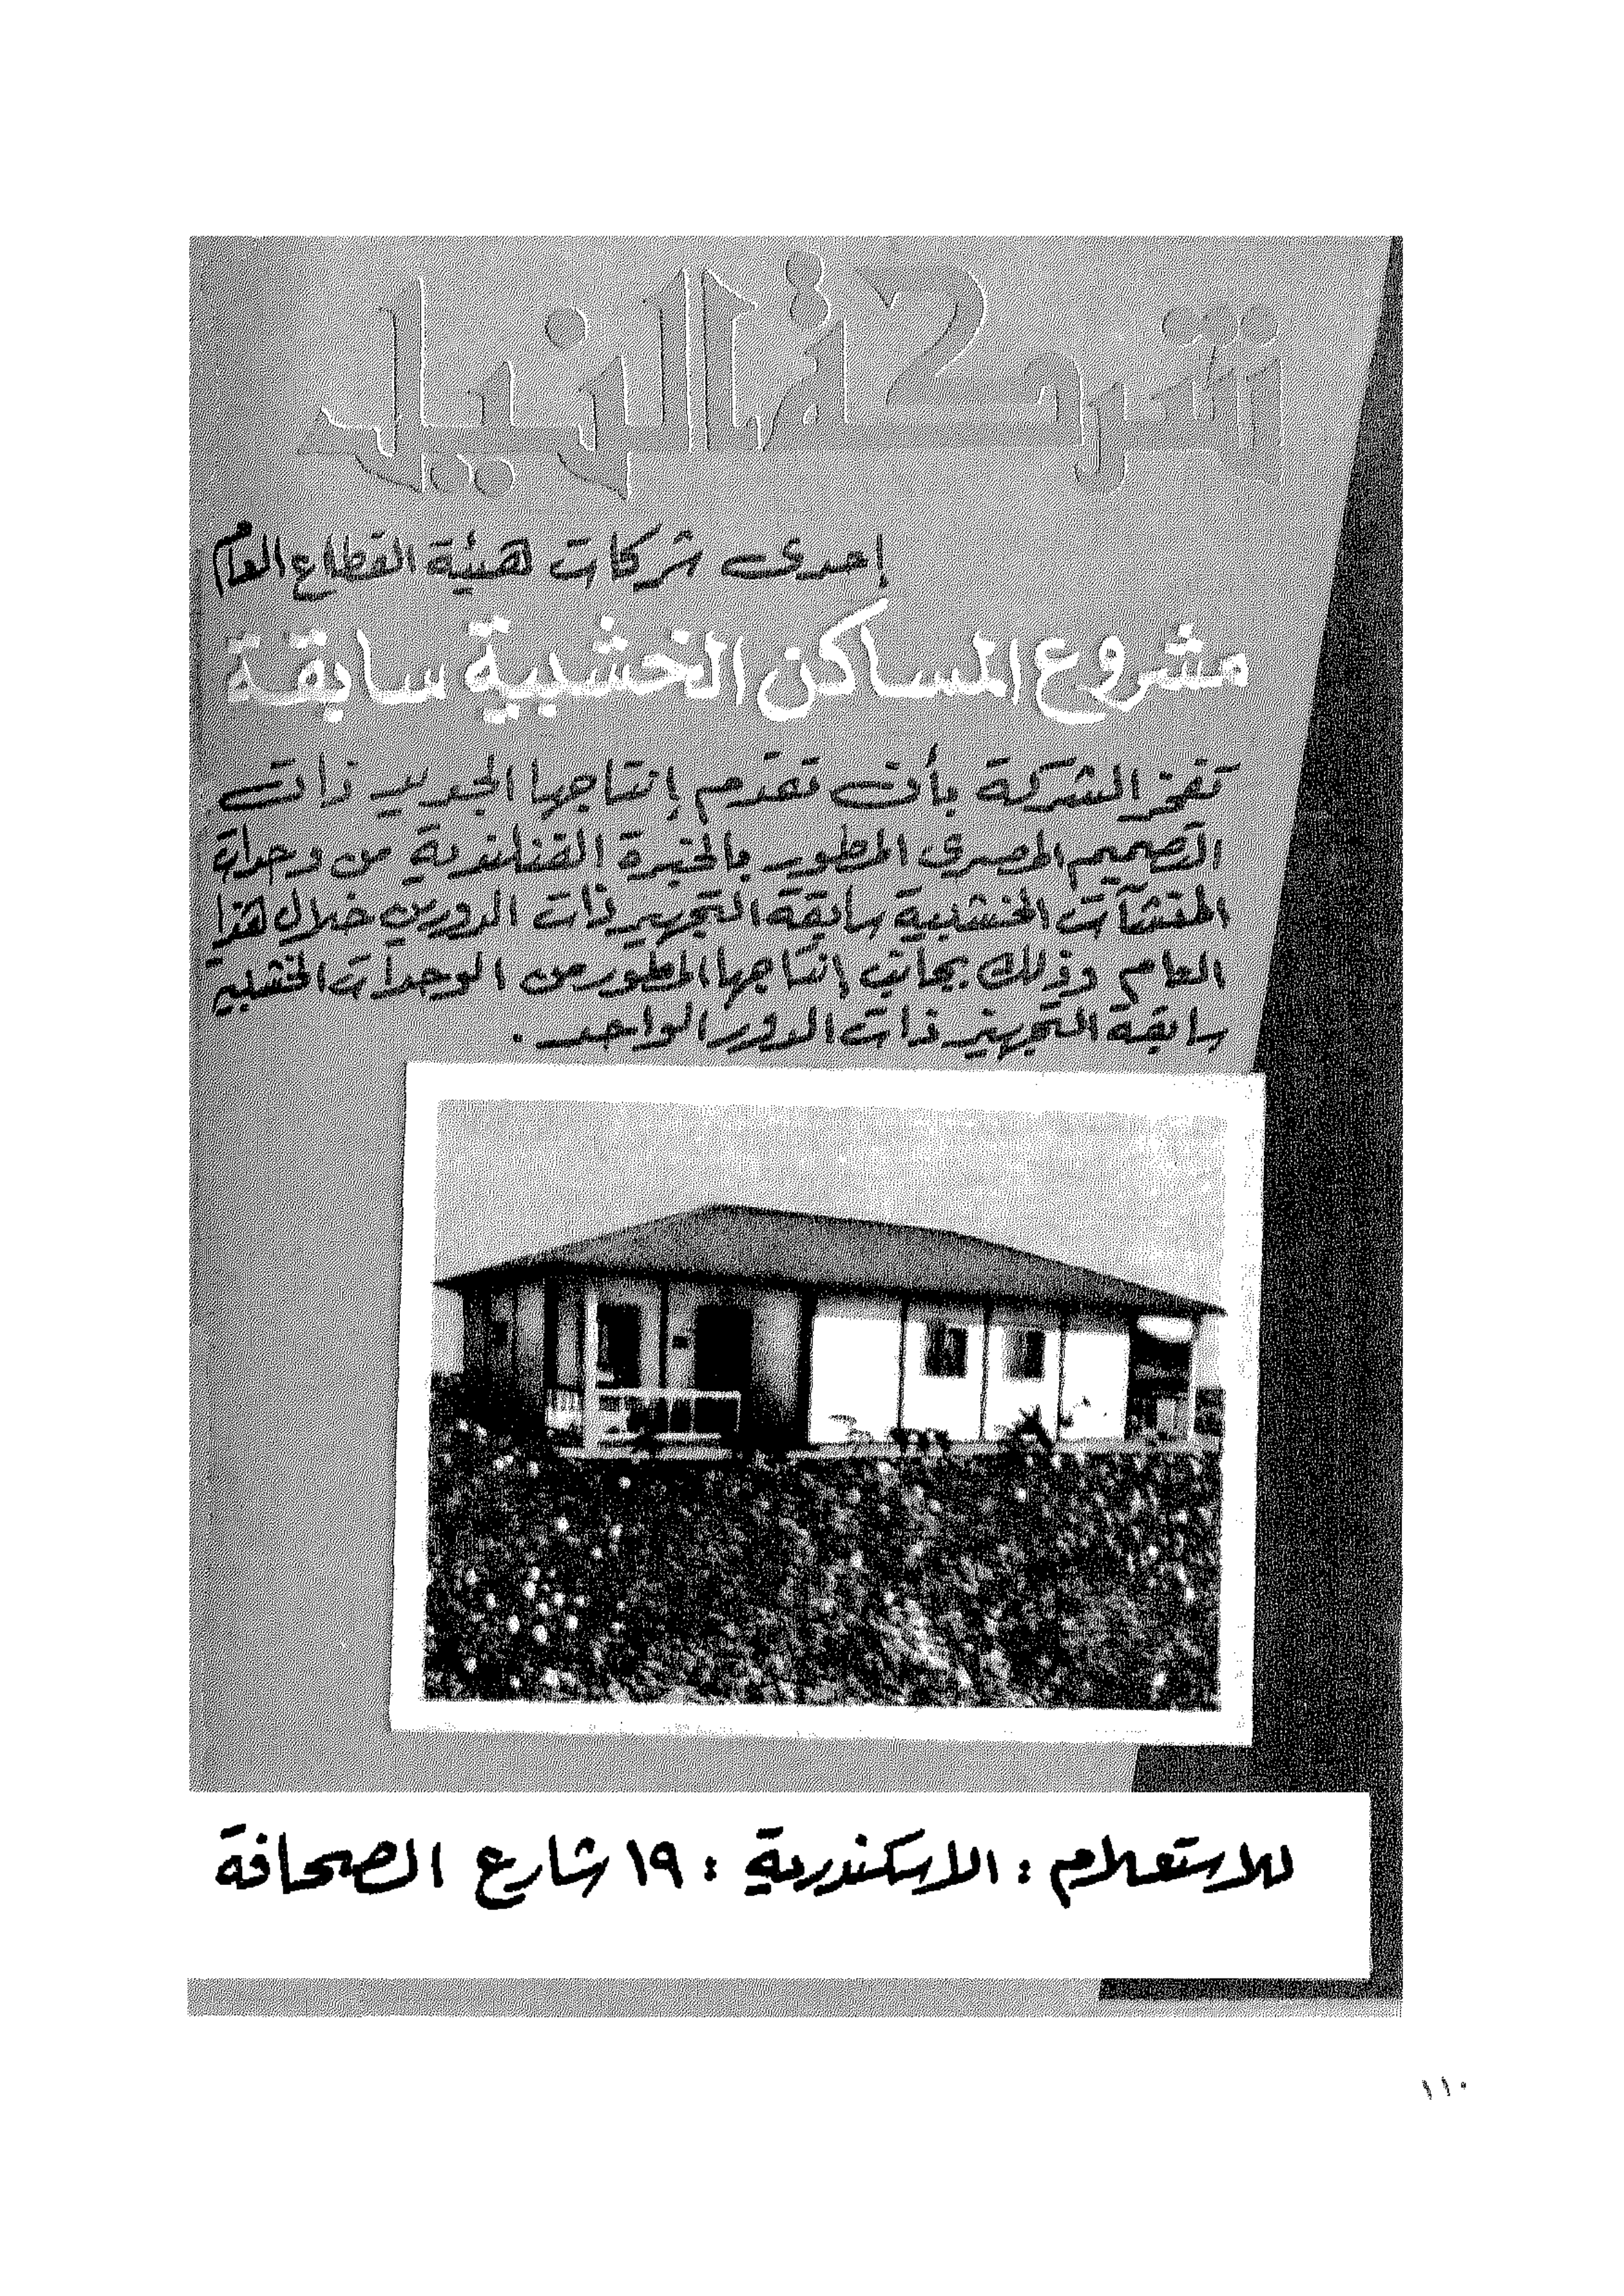 شركة النيل
إحدى شركات هيئة القطاع العام
مشروع المساكن الخشبية سابقة
تفخر الشركة بأن تقدم إنتاجها الجديد ذات
التصميم المصرى المطور بالخبرة الفنلندية من وحدات
المنشآت الخشبية سابقة التجهيز ذات الدورين خلال هذا
العام وذلك بجانب إنتاجها المطور من الوحدات الخشبية
سابقة التجهيز ذات الدور الواحد .
للاستعلام : الاسكندرية : ١٩ شارع الصحافة
١١٠